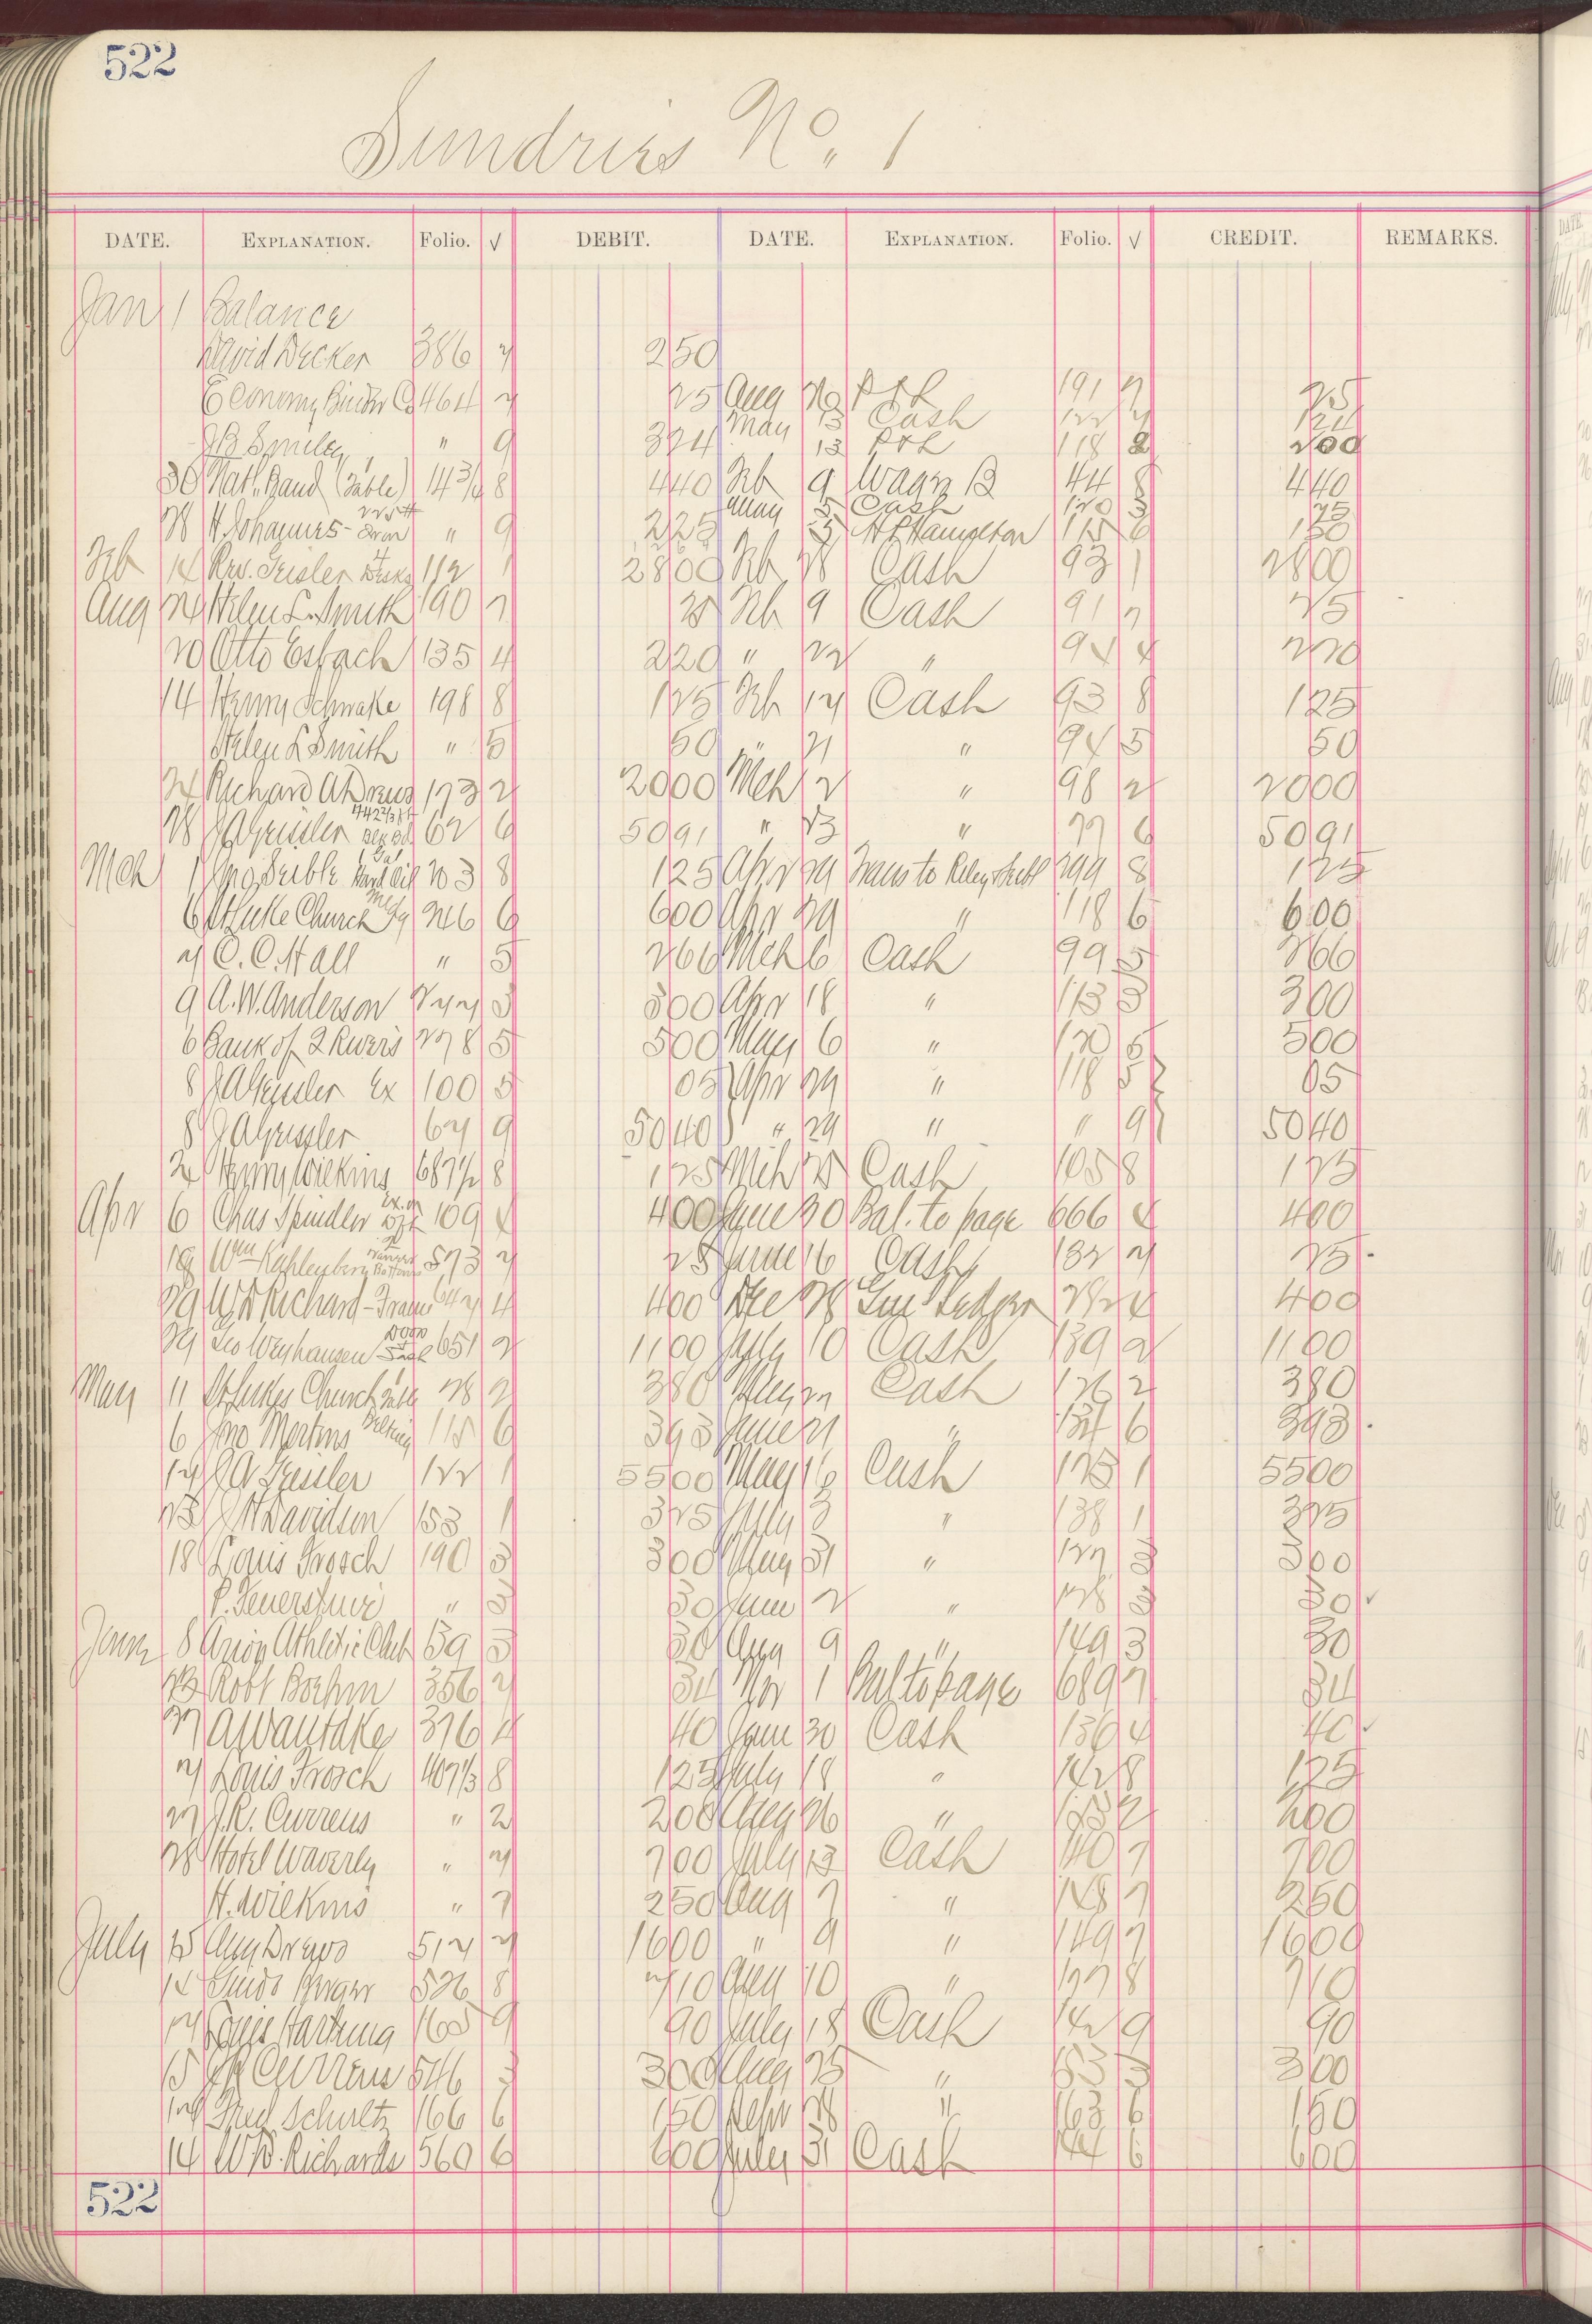 522
Sundries No. 1
DATE. EXPLANATION. Folio. √ DEBIT. DATE. EXPLANATION. Folio. √ CREDIT. REMARKS.
Jan 1 Balance
David Decker 386 7 250
Economy Binder Co 464 7 25 Aug P&L 191 7 25
May 13 Cash 122
J B Smiley " 9 324 13 P&L 118 2 200
30 Nat. Band (Table) 143/4 8 440 Feb 9 Wagn B 44 8 440
May 5 Cash 120 3 75
28 H Johannes " 9 225 5 H P Hampleton 115 6 150
Feb 14 Rev. Geisler Desks 112 1 2800 Feb 28 Cash 93 1 2800
Aug 24 Helen L. Smith 190 7 25 Feb 9 Cash 91 7 25
20 Otto Esbach 135 4 220 " 22 " 94 4 220
14 Henry Schnake 198 8 125 Feb 17 Cash 93 8 125
Helen L Smith " 5 50 " 21 " 94 5 50
24 Richard A Drews 173 2 2000 Mch 2 " 98 2 2000
28 J A Geissler 62 6 5091 " 23 " 77 6 5091
Mch 1 Jno. Seible 1 Gal Hard Oil 203 8 125 Apr 29 Trans to Riley & Seibl 299 8 125
6 St Luke Church 246 6 600 Apr 29 " 118 6 600
7 C. C. Hall " 5 266 Mch 6 Cash 99 5 266
9 A. W. Anderson 277 3 300 Apr 18 " 113 3 300
6 Bank of 2 Rivers 278 5 500 May 6 " 120 5 500
8 J A Geissler Ex 100 5 05 Apr 29 " 118 5 05
8 J A Geissler 67 9 5040 " 29 " " 9 5040
24 Henry Wilkins 687 1/2 8 125 Mch 25 Cash 105 8 125
Apr 6 Chas Spindler 109 4 400 June 30 Bal. to page 666 4 400
18 Wm Kahlenberg 573 7 25 June 16 Cash 132 7 25
29 W D Richard - Frame 647 4 400 Dec 28 Gen Ledger 4 400
29 Geo Weyhausen Door Sash 651 2 1100 July 10 Cash 139 2 1100
May 11 St Lukes Church Table 78 2 380 May 27 Cash 126 2 380
6 Jno Mertens Belting 115 6 393 June 21 " 134 6 393
17 J A Geissler 122 1 5500 May 18 Cash 123 1 5500
23 J H Davidson 153 1 325 July 3 " 138 1 325
18 Louis Frosch 190 3 300 May 31 " 127 3 300
P. Feuerstine " 3 30 June 2 " 128 3 30
June 8 Arion Athletic Club 59 3 30 Aug 9 " 149 3 30
23 Robt Boehm 356 7 34 Nov 1 Bal to page 689 7 34
27 A Wautake 376 4 40 June 30 Cash 136 4 40
7 Louis Frosch 407 1/3 8 125 July 18 " 142 8 125
27 J. R. Currens " 2 200 Aug 26 " 153 2 200
28 Hotel Waverly " 7 700 July 13 Cash 140 7 700
H. Wilkins " 7 250 Aug 7 " 148 7 250
July 15 Aug Drews 517 7 1600 " 9 " 149 7 1600
14 Guido Berger 526 8 710 Aug 10 " 8 710
17 Louis Hartung 165 9 90 July 18 Cash 142 9 90
15 J R Currens 546 3 300 Aug 25 " 153 3 300
17 Fred Schultz 166 6 150 Sept 28 " 163 6 150
14 W D. Richards 560 6 600 July 31 Cash 144 6 600
522